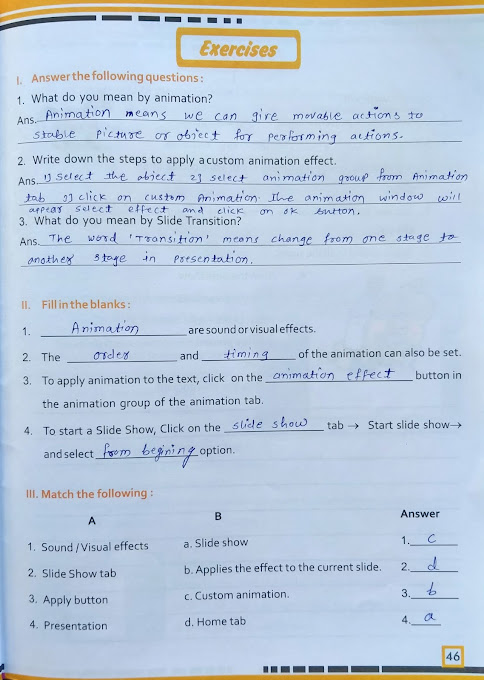 Exercises
I. Answer the following questions:
1. What do you mean by animation?
Ans. Animation means we can give movable actions to
stable picture or object for performing actions.
2. Write down the steps to apply a custom animation effect.
Ans. 1) select the object 2) select animation group from Animation
tab 3) click on custom Animation. The animation window will
appear select effect and click on ok button.
3. What do you mean by Slide Transition?
Ans. The word 'Transition' means change from one stage to
another stage in presentation.
II. Fill in the blanks:
1. Animation are sound or visual effects.
2. The order and timing of the animation can also be set.
3. To apply animation to the text, click on the animation effect button in
the animation group of the animation tab.
4. To start a Slide Show, Click on the slide show tab → Start slide show→
and select from begining option.
III. Match the following:
A B Answer
1. Sound / Visual effects a. Slide show 1. c
2. Slide Show tab b. Applies the effect to the current slide. 2. d
3. Apply button c. Custom animation. 3. b
4. Presentation d. Home tab 4. a
46